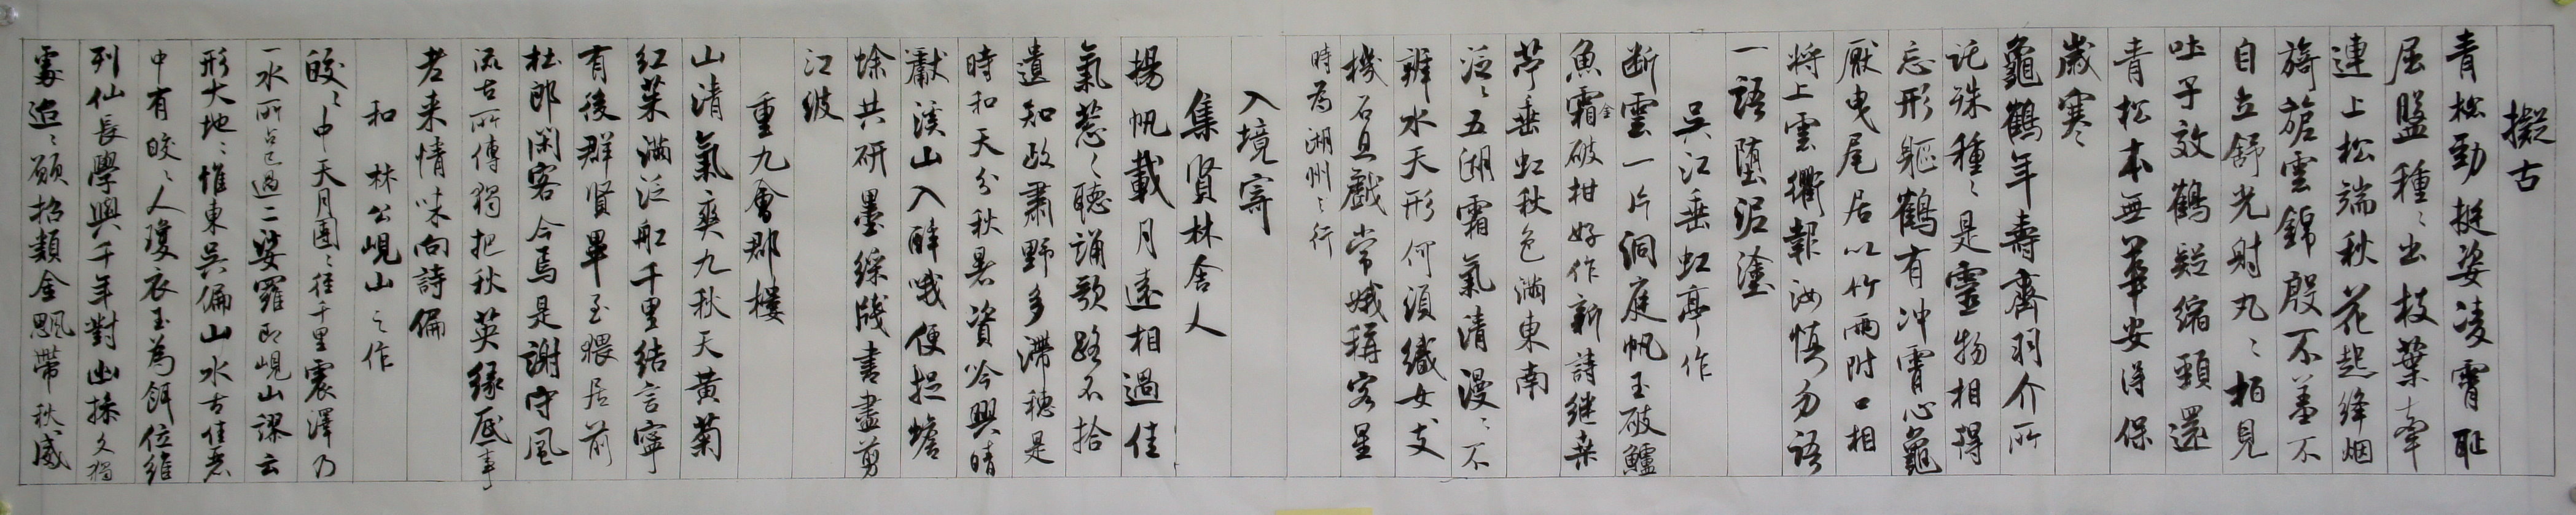 擬古
青松勁挺姿凌霄恥
屈盤種〻出枝葉牽
連上松端秋花起絳烟
旖旎雲錦殷不羞不
自立舒光射丸〻栢見
吐子效鶴疑縮頸還
青松本無華安得保
歲寒
龜鶴年壽齊羽介所
託殊種〻是靈物相得
忘形軀鶴有冲霄心龜
厭曳尾居以竹兩附口相
將上雲衢報汝慎勿語
一語墮泥塗
吳江垂虹亭作
断雲一片洞庭帆玉破鱸
魚霜金破柑好作新詩継桑
苧垂虹秋色滿東南
泛〻五湖霜氣清漫〻不
辨水天形何須織女支
機石且戲常娥稱客星
時為湖州〻行
入境寄
集賢林舍人
揚帆載月遠相過佳
氣葱〻聽誦歌路不拾
遺知政肅野多滯穗是
時和天分秋暑資吟興晴
獻溪山入醉哦便捉蟾
蜍共研墨綵牋書盡剪
江波
重九會郡樓
山清氣爽九秋天黃菊
紅茱滿泛船千里結言寧
有後群賢畢至猥居前
杜郎閑客今焉是謝守風
流古所傳獨把秋英緣底事
老来情味向詩偏
和林公峴山之作
皎〻中天月團〻徑千里震澤乃
一水所占已過二娑羅即峴山謬云
形大地〻惟東吳偏山水古佳麗
中有皎〻人瓊衣玉為餌位維
列仙長學與千年對幽操久獨
處迨〻願招類金飇帶秋威